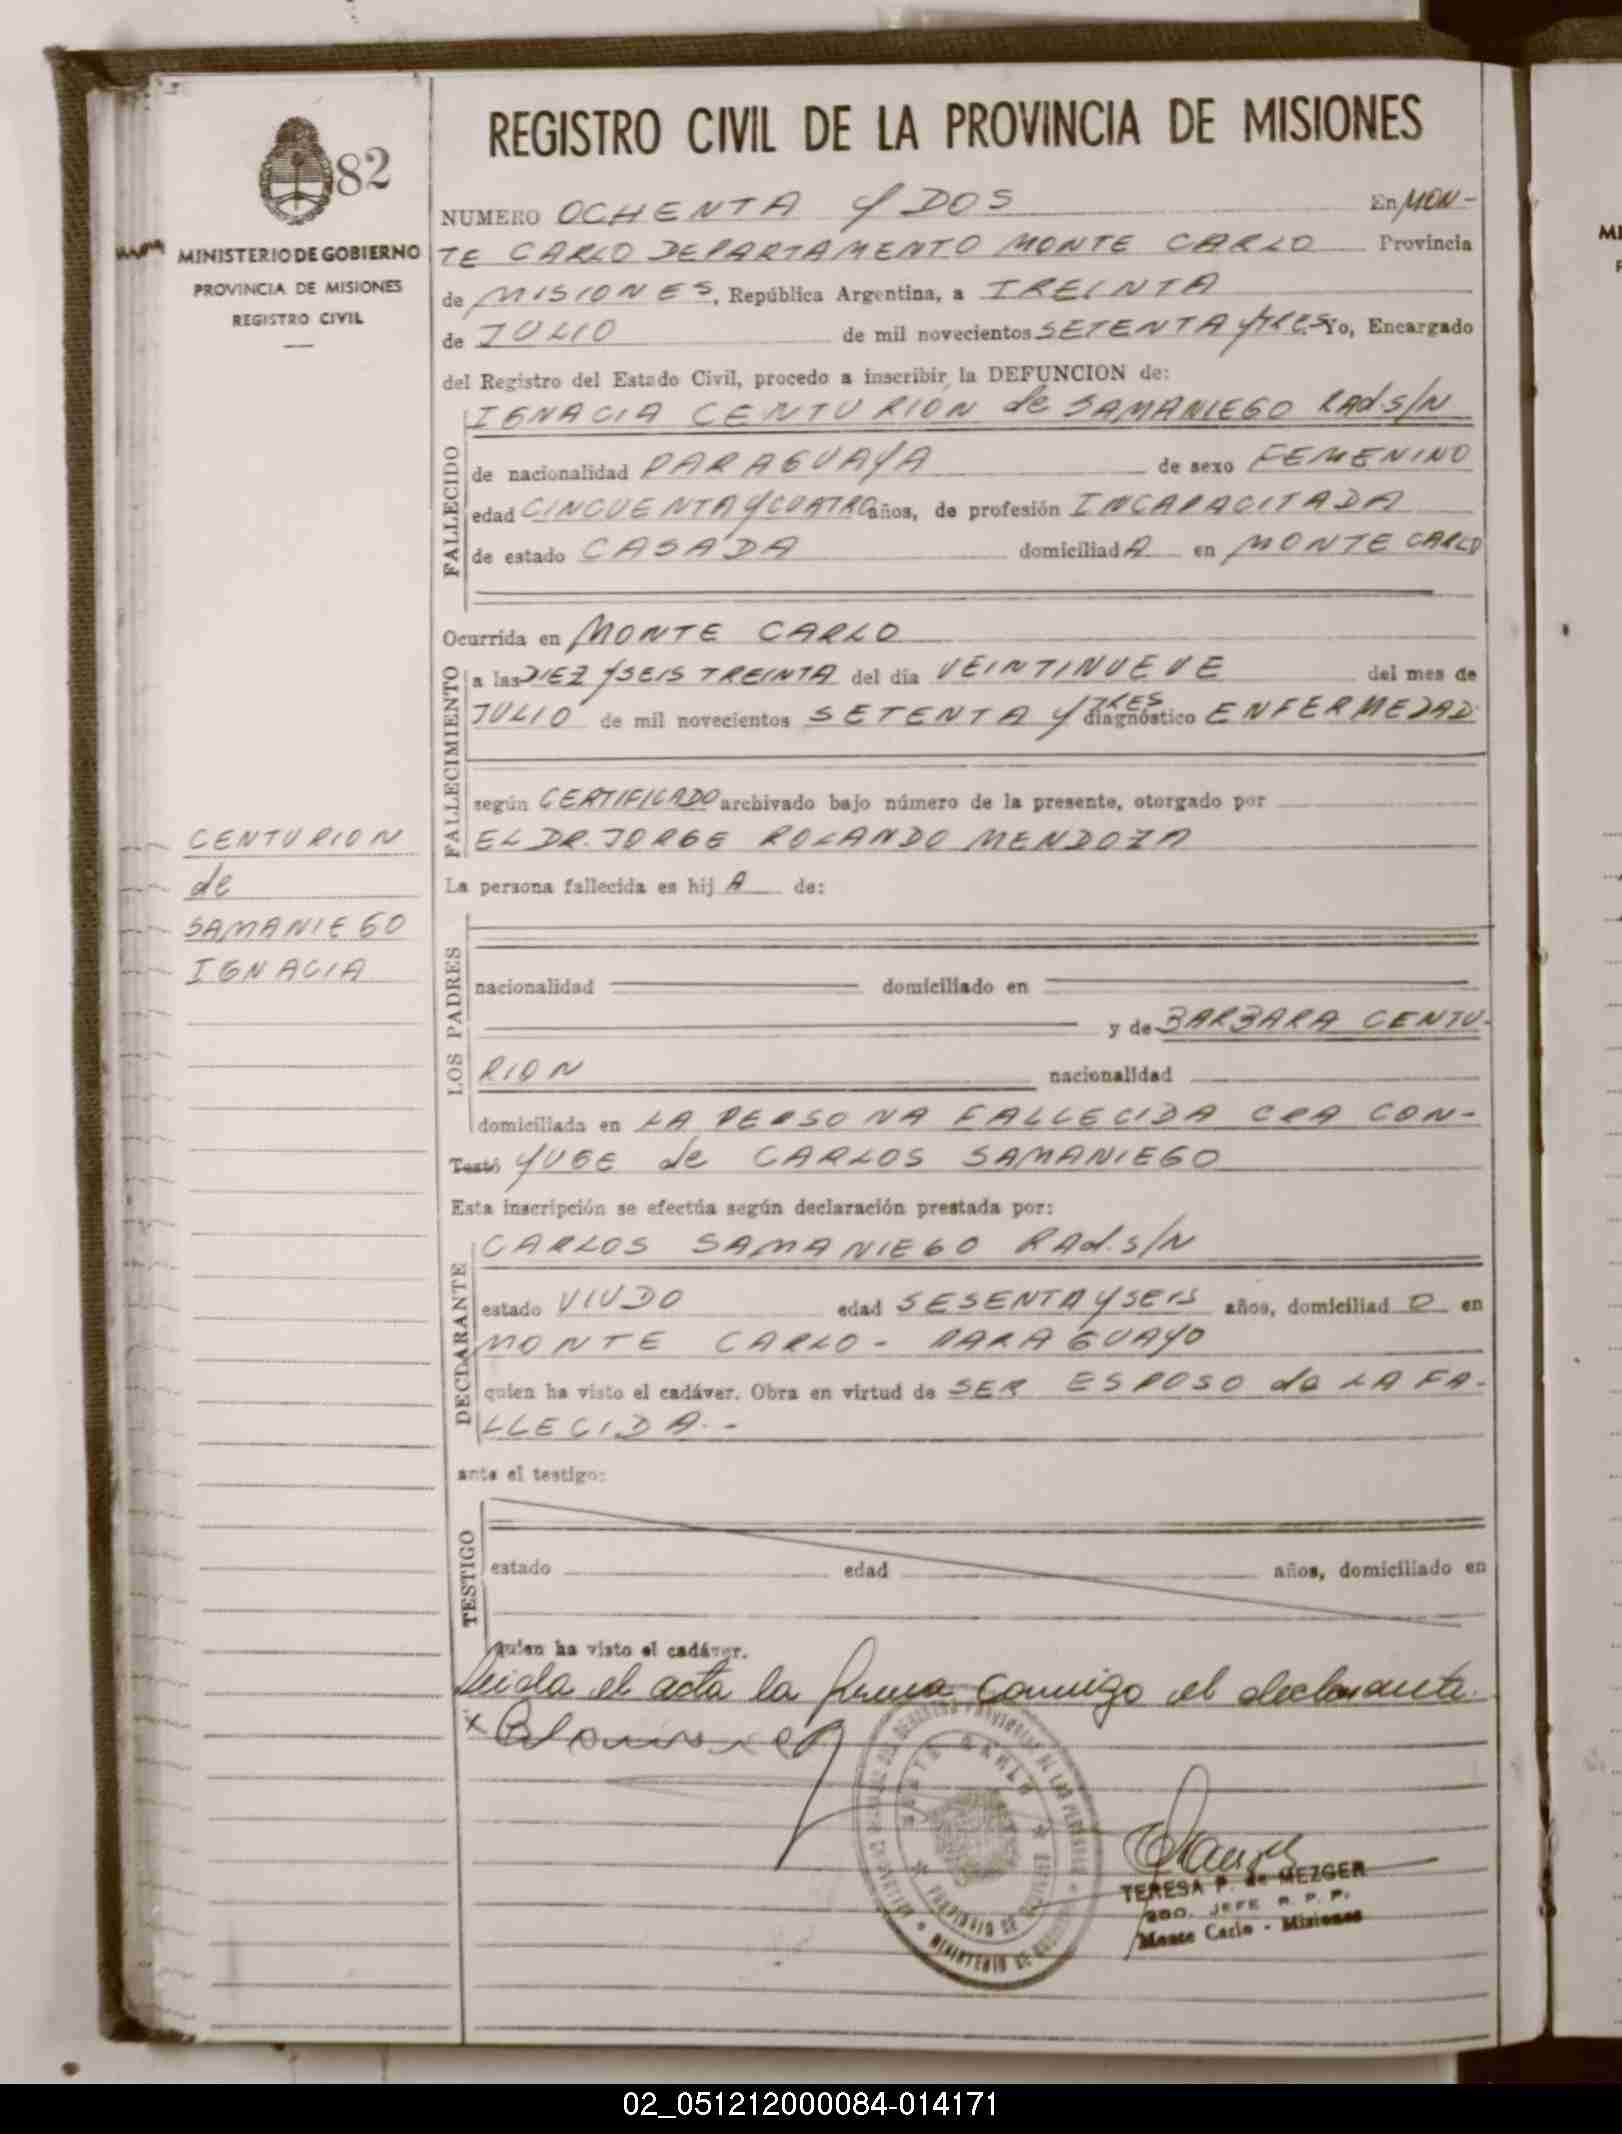 REGISTRO CIVIL DE LA PROVINCIA DE MISIONES
82
MINISTERIO DE GOBIERNO
PROVINCIA DE MISIONES
REGISTRO CIVIL
NUMERO OCHENTA Y DOS En MON-
TE CARLO DEPARTAMENTO MONTE CARLO Provincia
de MISIONES, República Argentina, a TREINTA
de JULIO de mil novecientos SETENTA Y TRES Yo, Encargado
del Registro del Estado Civil, procedo a inscribir la DEFUNCION de:
FALLECIDO
IGNACIA CENTURION de SAMANIEGO RAd.S/N
de nacionalidad PARAGUAYA de sexo FEMENINO
edad CINCUENTA Y CUATRO años, de profesión INCAPACITADA
de estado CASADA domiciliadA en MONTE CARLO
Ocurrida en MONTE CARLO
FALLECIMIENTO
a las DIEZ Y SEIS TREINTA del día VEINTINUEVE del mes de
JULIO de mil novecientos SETENTA Y TRES diagnóstico ENFERMEDAD
según CERTIFICADO archivado bajo número de la presente, otorgado por
EL DR. JORGE ROLANDO MENDOZA
CENTURION
de
SAMANIEGO
IGNACIA
La persona fallecida es hijA de:
LOS PADRES
nacionalidad domiciliado en
y de BARBARA CENTU-
RION nacionalidad
domiciliada en LA PERSONA FALLECIDA ERA CON-
Testó YUGE de CARLOS SAMANIEGO
Esta inscripción se efectúa según declaración prestada por:
DECLARANTE
CARLOS SAMANIEGO RAd.S/N
estado VIUDO edad SESENTA Y SEIS años, domiciliadO en
MONTE CARLO - PARAGUAYO
quien ha visto el cadáver. Obra en virtud de SER ESPOSO de LA FA-
LLECIDA.-
ante el testigo:
TESTIGO
estado edad años, domiciliado en
quien ha visto el cadáver.
Leida el acta la firma conmigo el declarante.
x
MONTE CARLO
TERESA P. de MEZGER
JEFE R. P. P.
Monte Carlo - Misiones
02_051212000084-014171